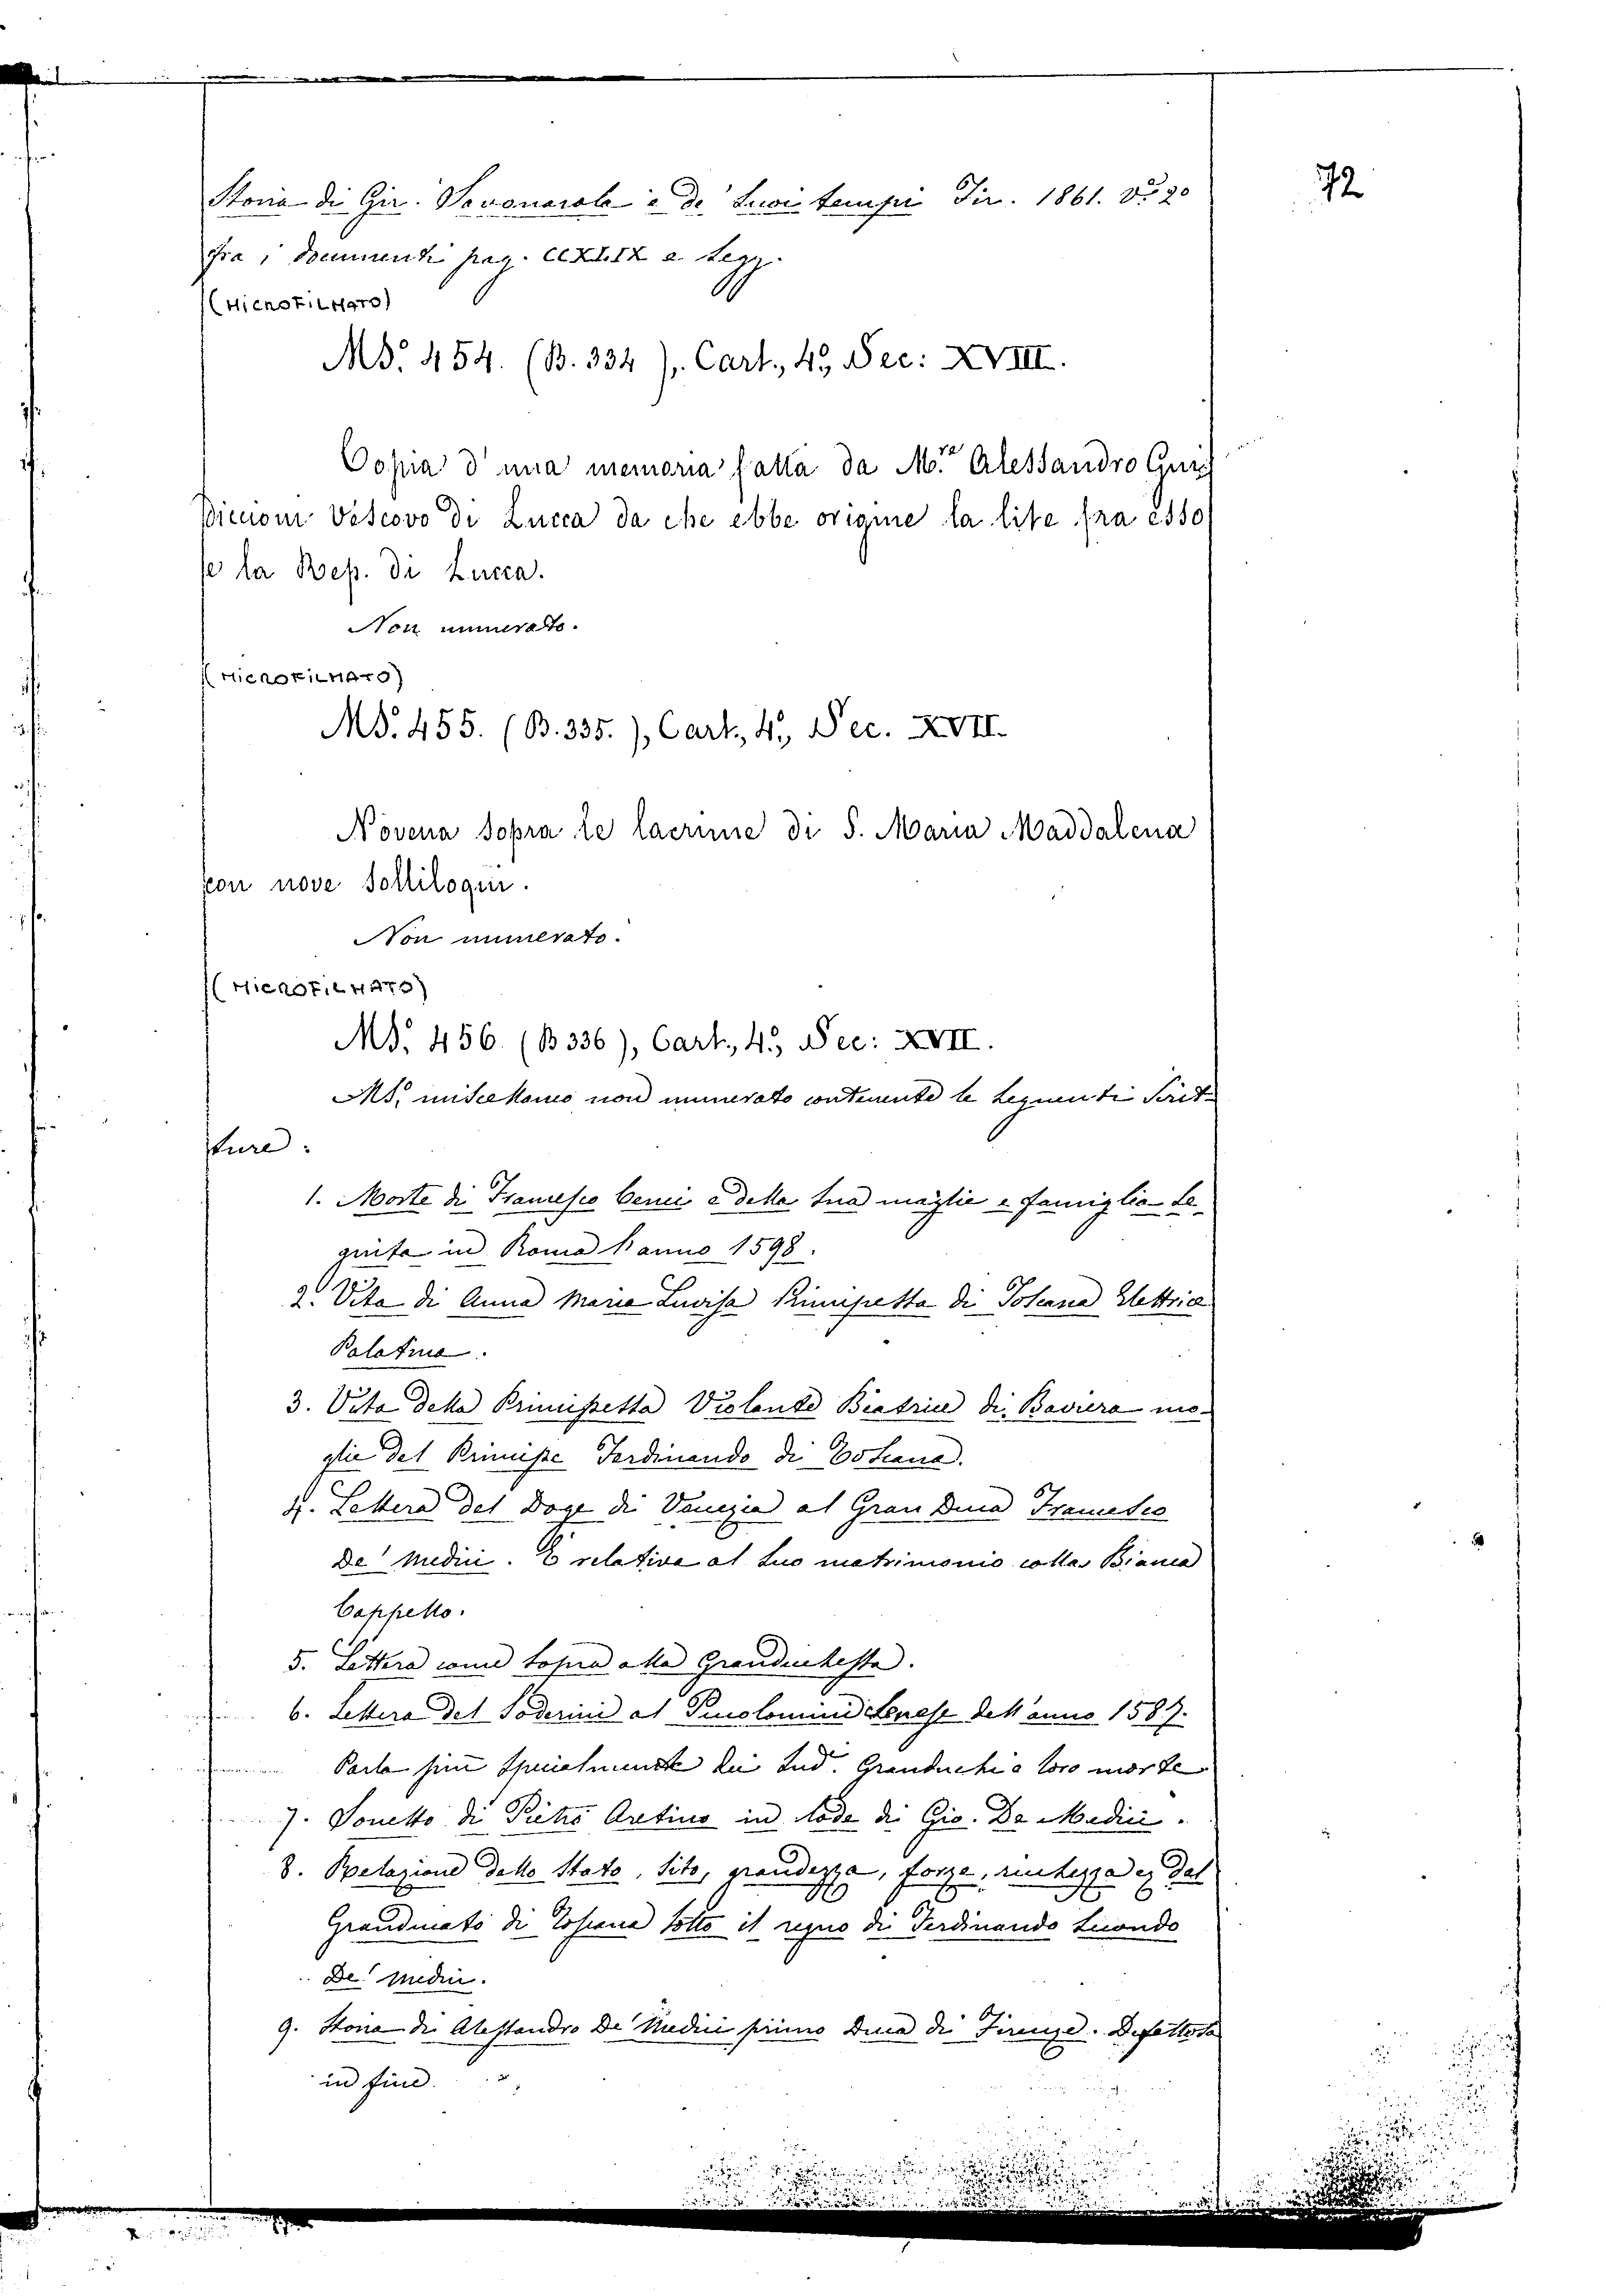 72
Storia di Gir. Savonarola e de' suoi tempi Fir. 1861. V. 2º
fra i documenti pag. CCXLIX e segg.
(MICROFILMATO)
MS. 454. (B. 334), Cart., 4º, Sec: XVIII.
Copia d'una memoria fatta da M.re Alessandro Gui
diccioni Vescovo di Lucca da che ebbe origine la lite fra esso
e la Rep. di Lucca.
Non numerato.
(MICROFILMATO)
MS. 455. (B. 335.), Cart., 4º, Sec. XVII.
Novena sopra le lacrime di S. Maria Maddalena
con nove solliloqui.
Non numerato.
(MICROFILMATO)
MS. 456. (B 336), Cart., 4º, Sec: XVII.
MS. miscellaneo non numerato contenente le seguenti Scrit-
ture:
1. Morte di Francesco Cenci e della sua moglie e famiglia se-
guita in Roma l'anno 1598.
2. Vita di Anna Maria Luvisa Principessa di Toscana Elettrice
Palatina.
3. Vita della Principessa Violante Beatrice di Baviera mo-
glie del Principe Ferdinando di Toscana.
4. Lettera del Doge di Venezia al Gran Duca Francesco
De' Medici. È relativa al suo matrimonio colla Bianca
Cappello.
5. Lettera come sopra alla Granduchessa.
6. Lettera del Soderini al Piccolomini Senese dell'anno 1587.
Parla più specialmente dei sud.i Granduchi e loro morte
7. Sonetto di Pietro Aretino in lode di Gio. De Medici.
8. Relazione dello Stato, sito, grandezza, forze, ricchezza ec del
Granducato di Toscana sotto il regno di Ferdinando secondo
De' Medici.
9. Storia di Alessandro De' Medici primo Duca di Firenze. Difettosa
in fine.